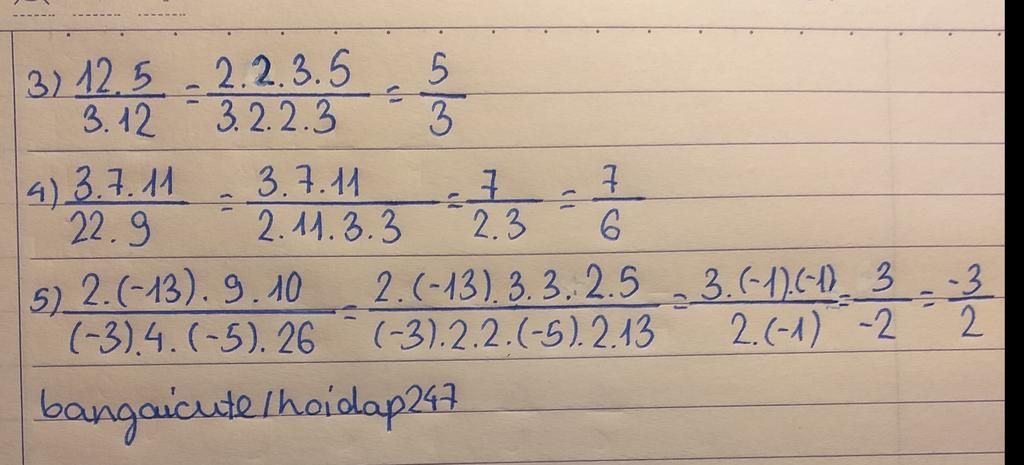 3) 12.5/3.12 = 2.2.3.5/3.2.2.3 = 5/3
4) 3.7.11/22.9 = 3.7.11/2.11.3.3 = 7/2.3 = 7/6
5) 2.(-13).9.10/(-3).4.(-5).26 = 2.(-13).3.3.2.5/(-3).2.2.(-5).2.13 = 3.(-1).(-1)/2.(-1) = 3/-2 = -3/2
bangaicute/hoidap247